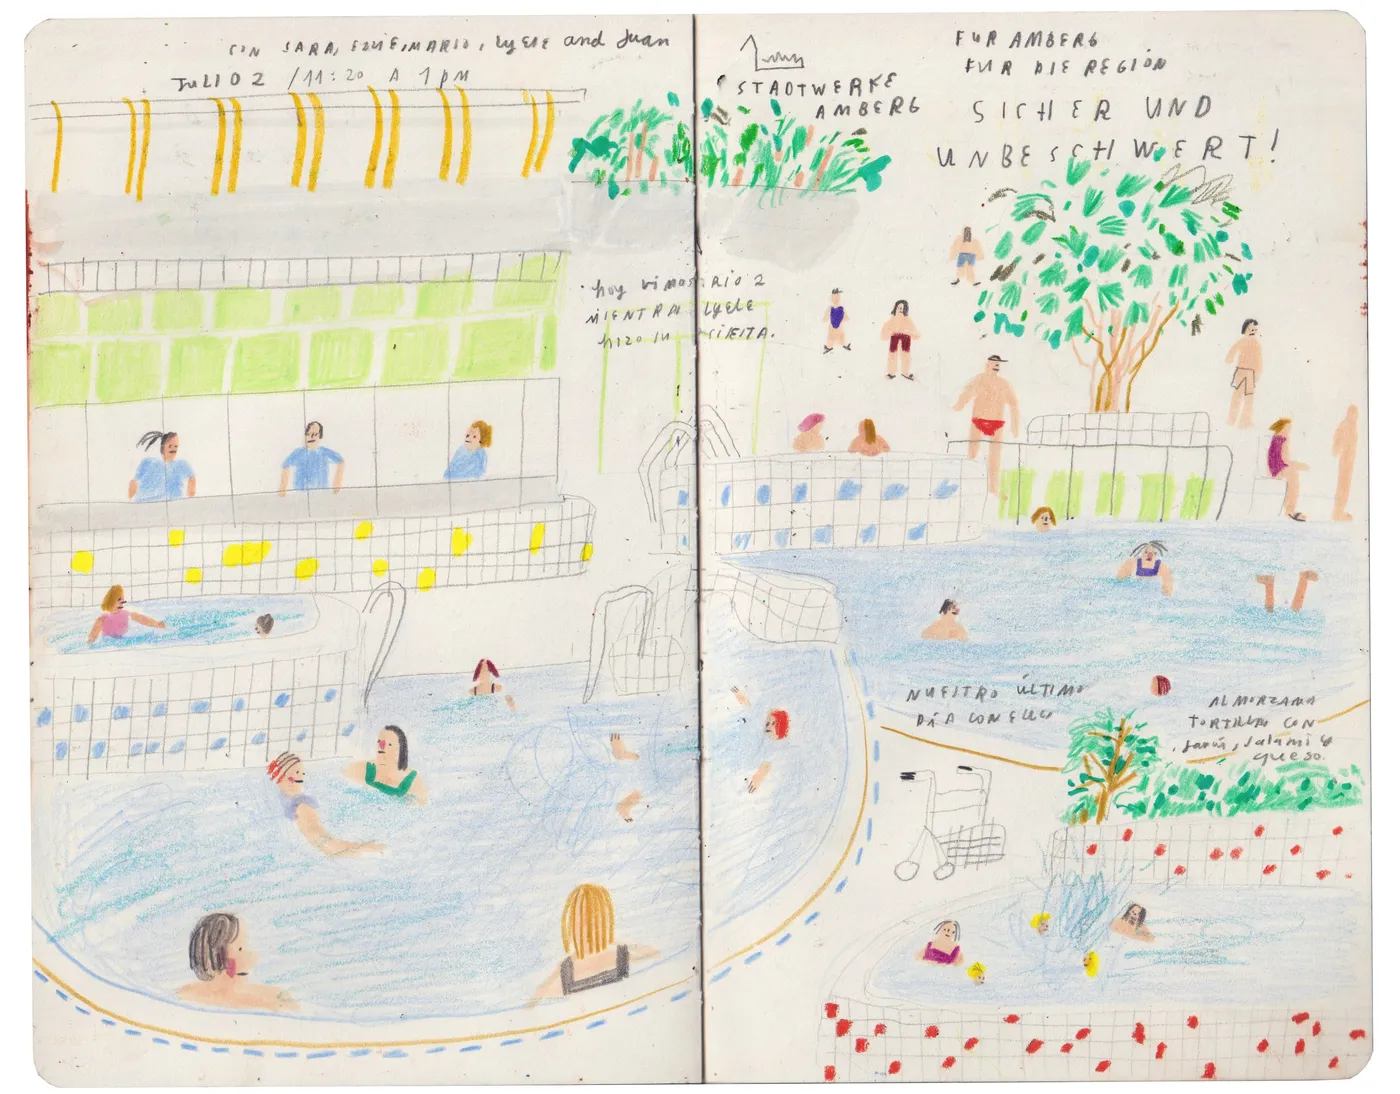 CON SARA, EDDIE, MARIO, Lyele and Juan
JULIO 2 / 11:20 A 1 PM
STADTWERKE
AMBERG
FUR AMBERG
FUR DIE REGIÓN
SICHER UND
UNBESCHWERT!
hoy vimos RIO 2
MIENTRAS LYELE
hizo SU SIESTA.
NUESTRO ÚLTIMO
DÍA CON ELLOS
ALMORZAMOS
TORTILLAS CON
jamón, salami y
queso.